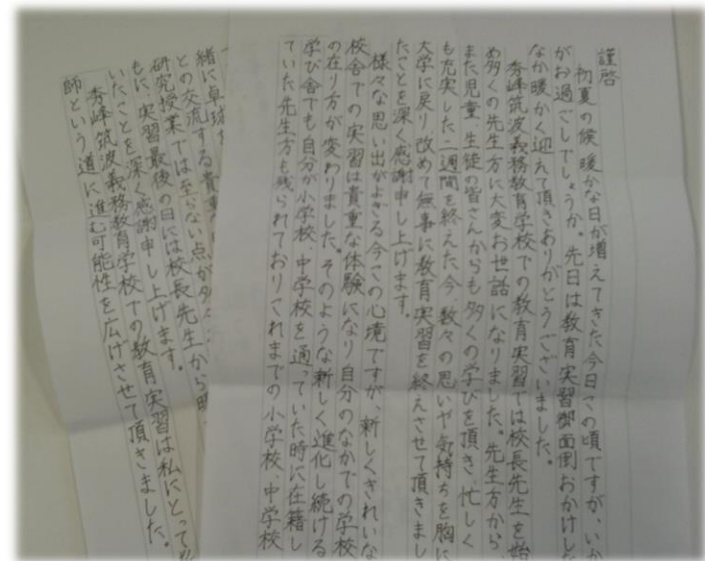 謹啓
初夏の候 暖かな日が増えてきた今日この頃ですが、いか
がお過ごしでしょうか。先日は教育実習御面倒おかけした
なか暖かく迎えて頂きありがとうございました。
秀峰筑波義務教育学校での教育実習では校長先生を始
め多くの先生方に大変お世話になりました。先生方から、
また児童、生徒の皆さんからも多くの学びを頂き、忙しく
も充実した二週間を終えた今、数々の思いや気持ちを胸に
大学に戻り改めて無事に教育実習を終えさせて頂きまし
たことを深く感謝申し上げます。
様々な思い出がよぎる今この心境ですが、新しくきれいな
校舎での実習は貴重な体験になり自分のなかでの学校
の在り方が変わりました。そのような新しく進化し続ける
学び舎でも自分が小学校、中学校を通っていた時に在籍し
ていた先生方も残られておりこれまでの小学校、中学校
緒に卓球を
との交流する貴重
研究授業では至らない点が多々
もに、実習最後の日には校長先生から
いたことを深く感謝申し上げます。
秀峰筑波義務教育学校での教育実習は私にとって
師という道に進む可能性を広げさせて頂きました。